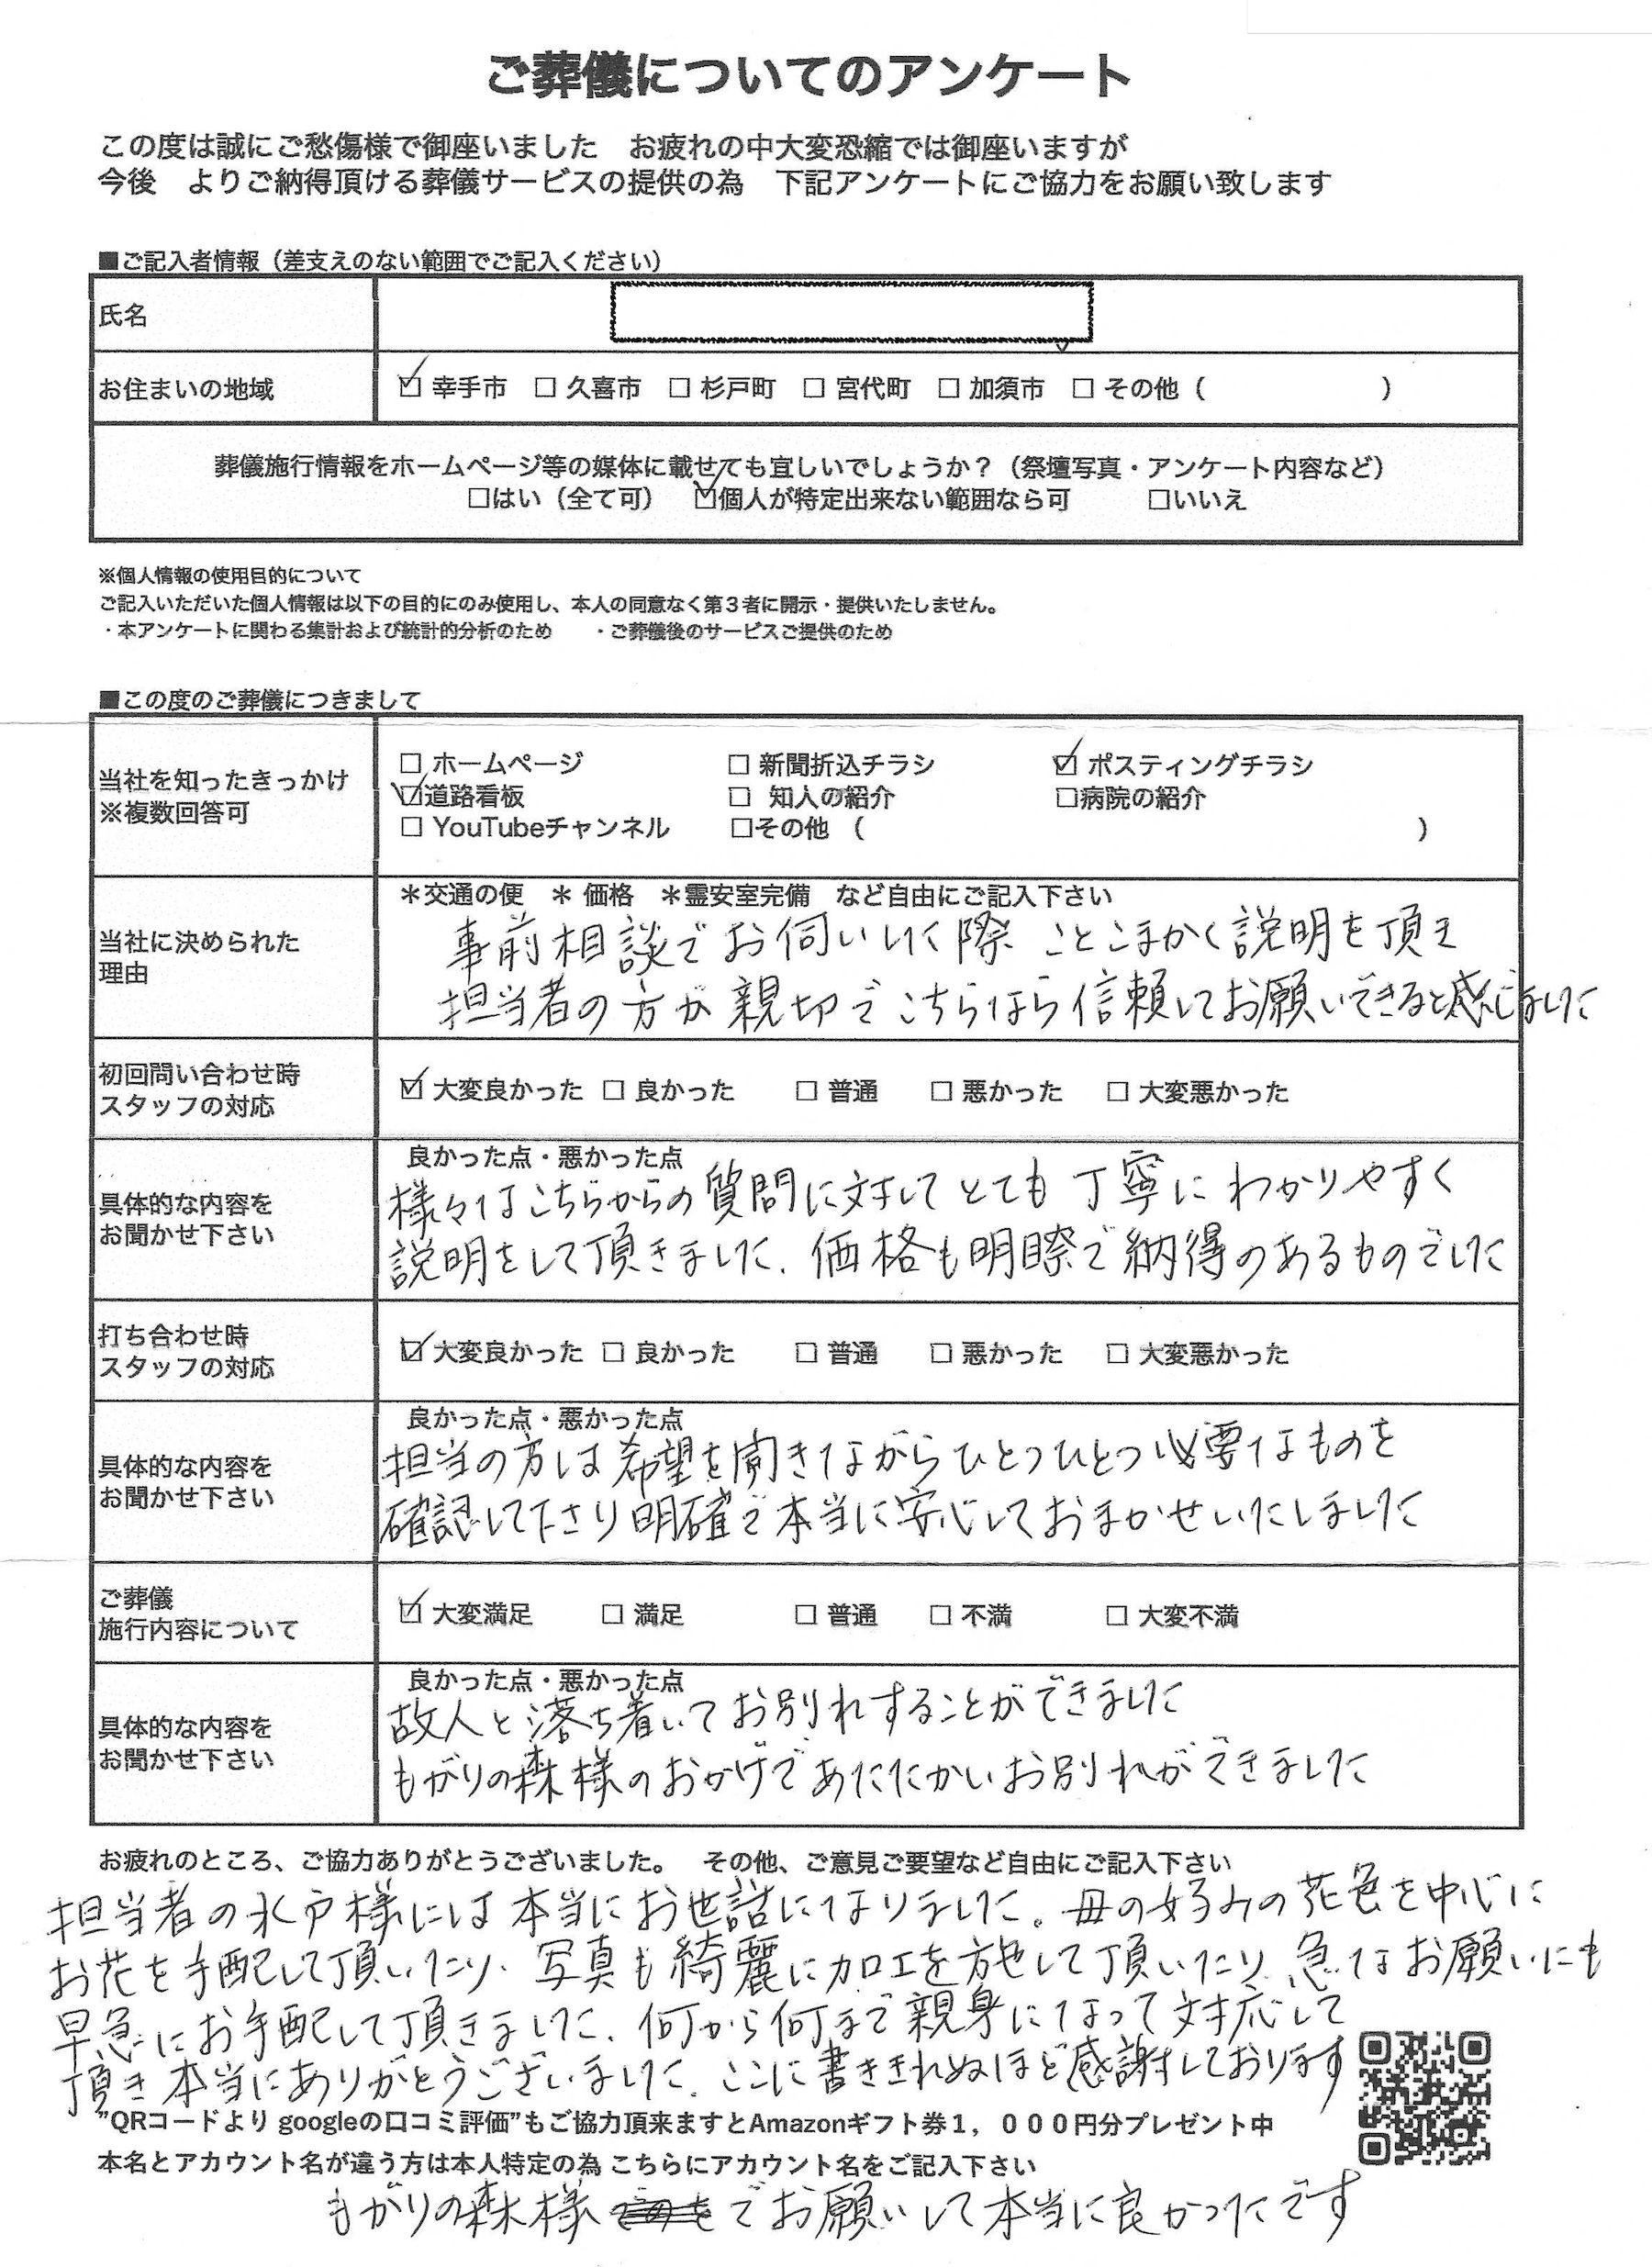 ご葬儀についてのアンケート
この度は誠にご愁傷様で御座いました　お疲れの中大変恐縮では御座いますが
今後　よりご納得頂ける葬儀サービスの提供の為　下記アンケートにご協力をお願い致します
■ご記入者情報（差支えのない範囲でご記入ください）
氏名
お住まいの地域 ☑ 幸手市 □ 久喜市 □ 杉戸町 □ 宮代町 □ 加須市 □ その他（　　　　）
葬儀施行情報をホームページ等の媒体に載せても宜しいでしょうか？（祭壇写真・アンケート内容など）
□はい（全て可）　☑個人が特定出来ない範囲なら可　□いいえ
※個人情報の使用目的について
ご記入いただいた個人情報は以下の目的にのみ使用し、本人の同意なく第３者に開示・提供いたしません。
・本アンケートに関わる集計および統計的分析のため　・ご葬儀後のサービスご提供のため
■この度のご葬儀につきまして
当社を知ったきっかけ
※複数回答可
□ ホームページ □ 新聞折込チラシ ☑ ポスティングチラシ
☑道路看板 □ 知人の紹介 □病院の紹介
□ YouTubeチャンネル □その他（　　　　）
当社に決められた
理由
＊交通の便　＊ 価格　＊霊安室完備　など自由にご記入下さい
事前相談でお伺いした際 ことこまかく説明を頂き
担当者の方が親切でこちらなら信頼してお願いできると感じました
初回問い合わせ時
スタッフの対応
☑ 大変良かった □ 良かった □ 普通 □ 悪かった □ 大変悪かった
具体的な内容を
お聞かせ下さい
良かった点・悪かった点
様々なこちらからの質問に対してとても丁寧にわかりやすく
説明をして頂きました、価格も明瞭で納得のあるものでした
打ち合わせ時
スタッフの対応
☑ 大変良かった □ 良かった □ 普通 □ 悪かった □ 大変悪かった
具体的な内容を
お聞かせ下さい
良かった点・悪かった点
担当の方は希望を聞きながらひとつひとつ必要なものを
確認して下さり明確で本当に安心しておまかせいたしました
ご葬儀
施行内容について
☑ 大変満足 □ 満足 □ 普通 □ 不満 □ 大変不満
具体的な内容を
お聞かせ下さい
良かった点・悪かった点
故人と落ち着いてお別れすることができました
もがりの森様のおかげであたたかいお別れができました
お疲れのところ、ご協力ありがとうございました。　その他、ご意見ご要望など自由にご記入下さい
担当者の水戸様には本当にお世話になりました。母の好みの花色を中心に
お花を手配して頂いたり、写真も綺麗に加工を施して頂いたり、急なお願いにも
早急にお手配して頂きました、何から何まで親身になって対応して
頂き本当にありがとうございました、ここに書ききれぬほど感謝しております
”QRコードより googleの口コミ評価”もご協力頂来ますとAmazonギフト券１，０００円分プレゼント中
本名とアカウント名が違う方は本人特定の為 こちらにアカウント名をご記入下さい
もがりの森様でお願いして本当に良かったです